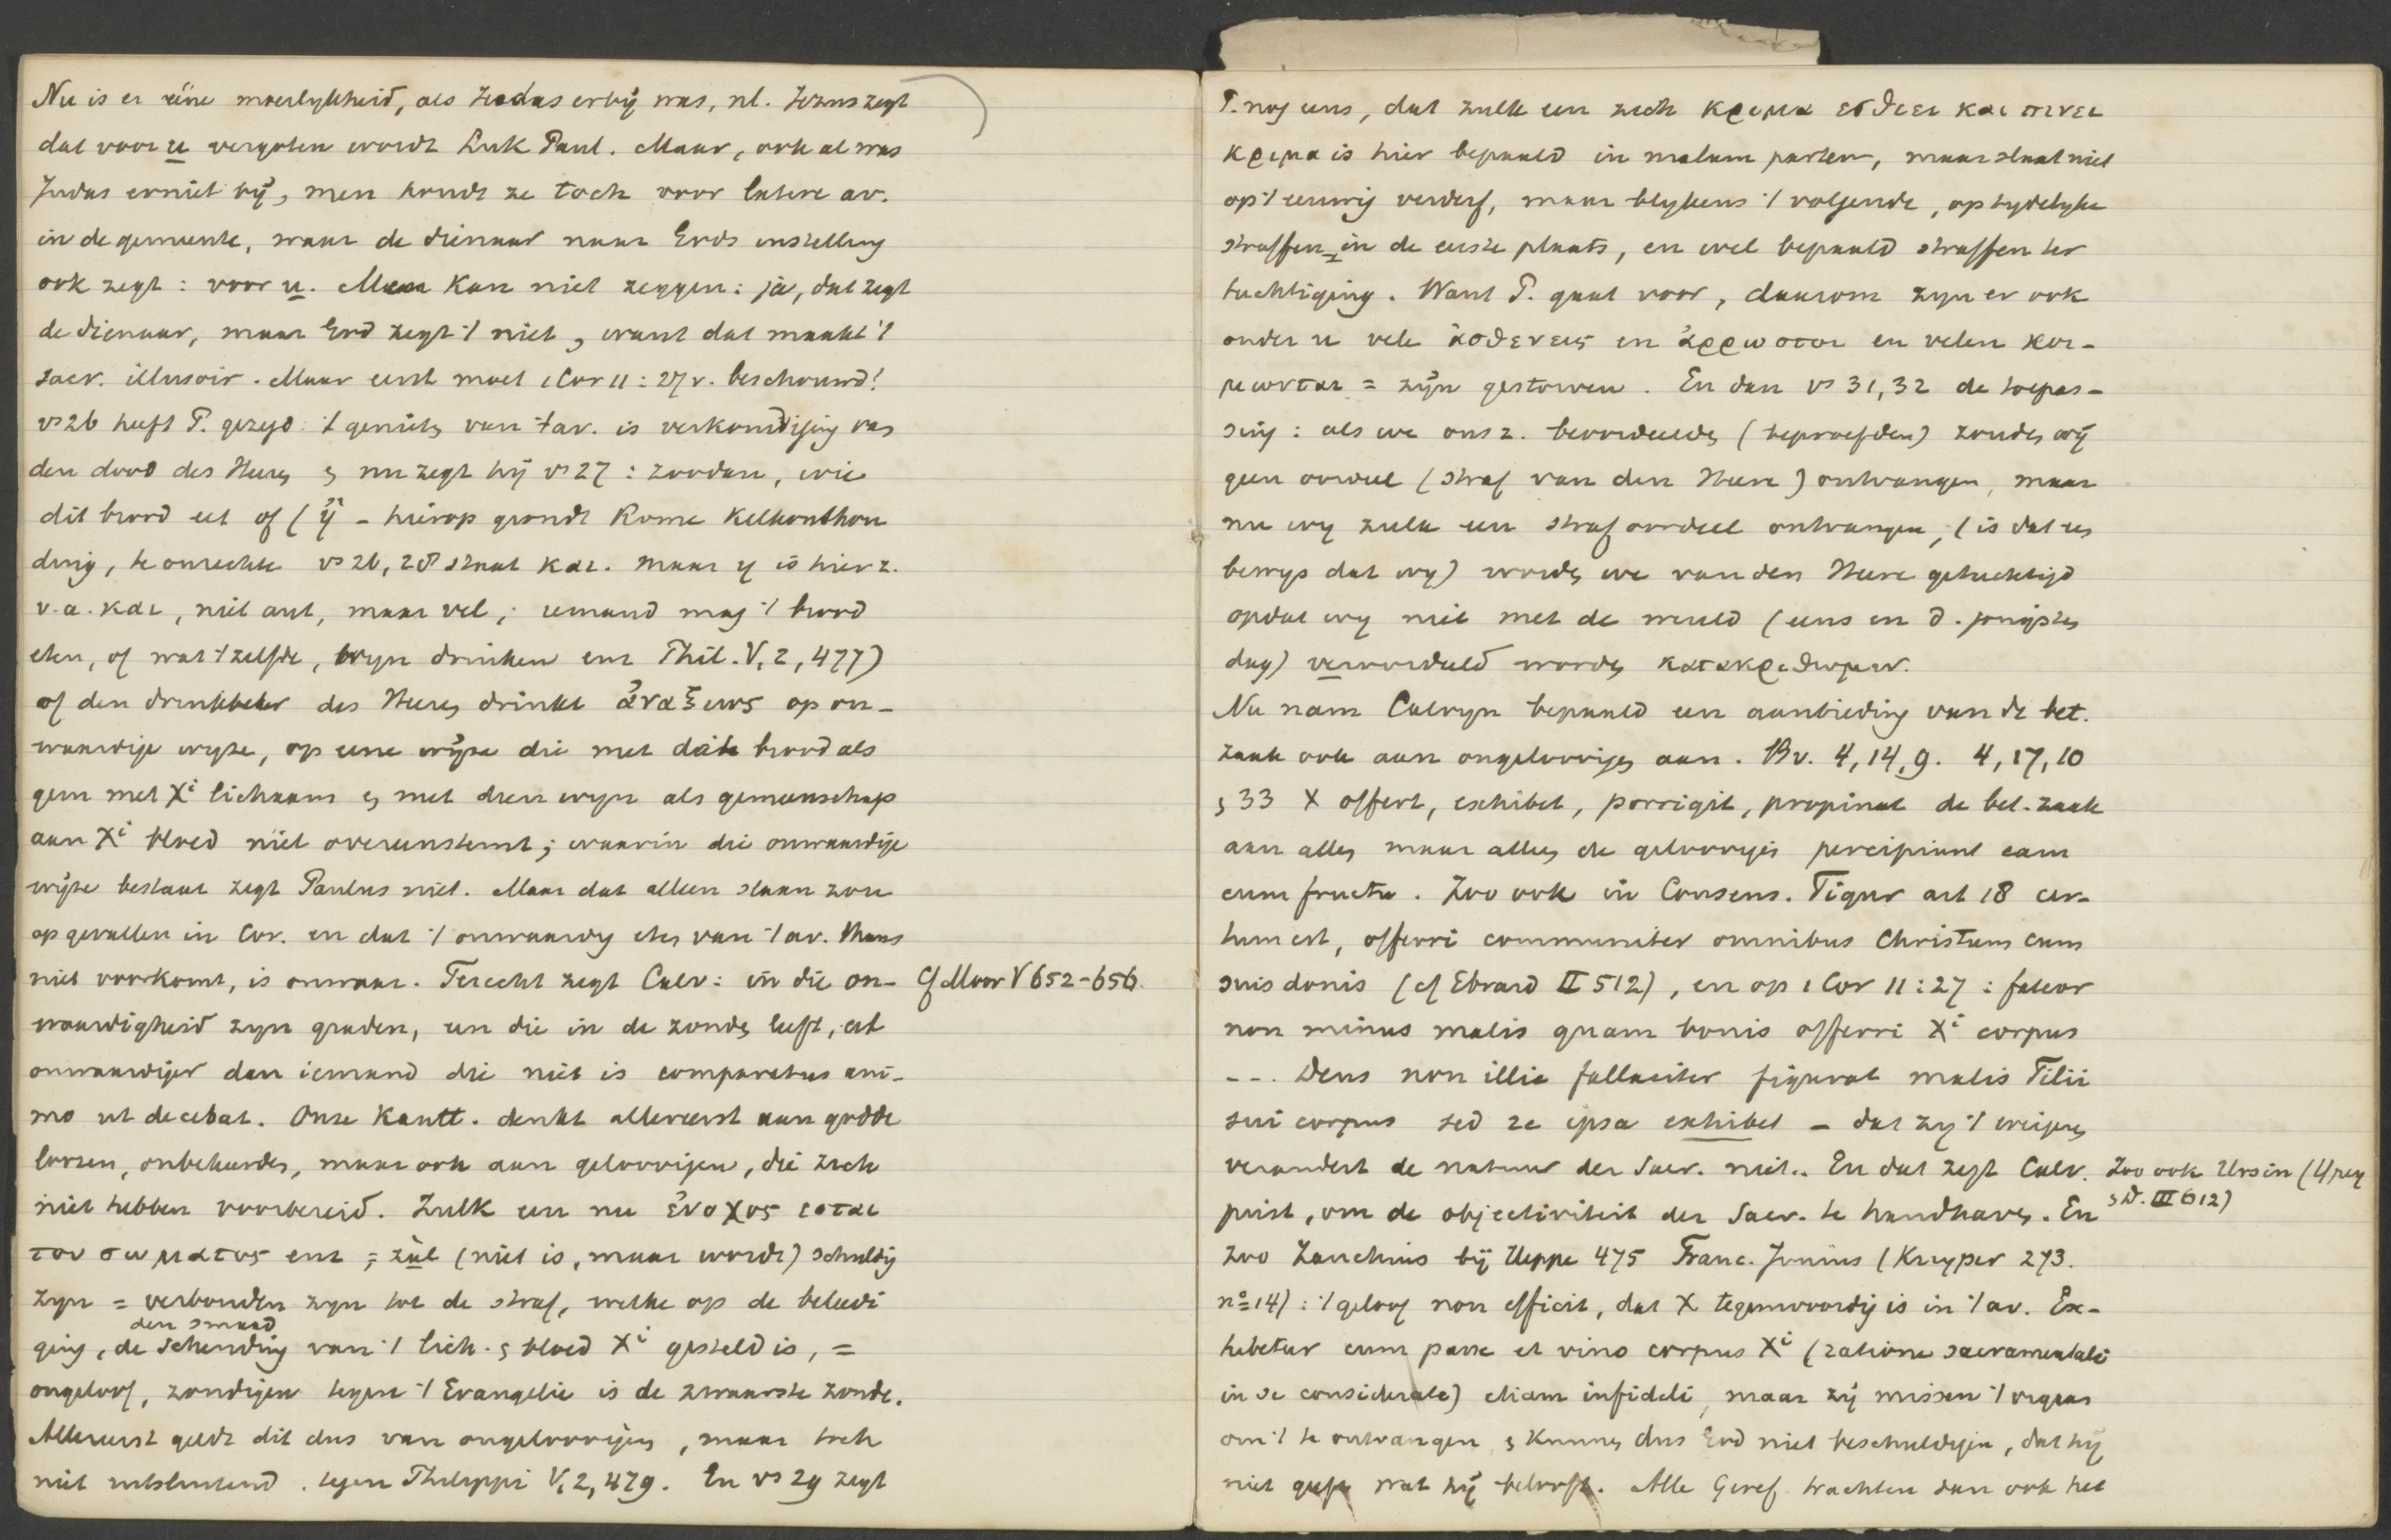 Nu is er eéne moeilykheid, als Judas erbij was, nl. Jezus zegt
dat voor u vergoten wordt Luk Paul. Maar, ook al was
Judas erniet bij, men houdt ze toch voor latere av.
in de gemeente, waar de dienaar naar Gods instelling
ook zegt: voor u. Men kan niet zeggen: ja, dat zegt
de dienaar, maar God zegt 't niet, want dat maakt 't
sacr. illusoir. Maar eerst moet 1 Cor 11:27v. beschouwd!
vs 26 heeft P. gezegd: 't genieten van 't av. is verkondiging van
den dood des Heeren en nu zegt hij vs 27: zoodan, wie
dit brood eet of (ἤ - hierop grondt Rome Kelkonthou
ding, te onrechte vs 26, 28 staat και. maar η is hier z.
v.a. και, niet aut, maar vel; iemand mag 't brood
eten, of wat 't zelfde, wyn drinken enz Phil. V, 2, 477)
of den drinkbeker des Heeren drinkt ἀναξιως op on-
waardige wyze, op eene wijze die met dat brood als
gem met Xi lichaam en met dien wyn als gemeenschap
aan Xi bloed niet overeenstemt; waarin die onwaardige
wijze bestaat zegt Paulus niet. Maar dat alleen slaan zou
op gevallen in Cor. en dat 't onwaardig eten van 't av. thans
niet voorkomt, is onwaar. Terecht zegt Calv: in die on- Cf Moor V 652-656.
waardigheid zyn graden, een die in de zonden leeft, eet
onwaardiger dan iemand die niet is comparatus ani-
mo ut decebat. Onze Kantt. denkt allereerst aan godde
loozen, onbekeerden, maar ook aan geloovigen, die zich
niet hebben voorbereid. Zulk een nu ἐνοχος εσται
του σωματος enz = zàl (niet is, maar wordt) schuldig
zyn = verbonden zyn tot de straf, welke op de beleedi
den smaad
ging, de schending van 't lich. en bloed Xi gesteld is, =
ongeloof, zondigen tegen 't Evangelie is de zwaarste zonde.
Allereerst geldt dit dus van ongeloovigen, maar toch
niet uitsluitend. tegen Philippi V, 2, 479. En vs 29 zegt
P. nog eens, dat zulk een zich κριμα εσθιει και πινει
κριμα is hier bepaald in malam partem, maar slaat niet
op 't eeuwig verderf, maar blykens 't volgende, op tydelyke
straffen in de eerste plaats, en wel bepaald straffen ter
tuchtiging. Want P. gaat voor, daarom zyn er ook
onder u vele ἀσθενεις en ἀρρωστοι en velen κοι-
μωνται = zijn gestorven. En dan vs 31, 32 de toepas-
sing: als we ons z. beoordeelden (beproefden) zouden wij
geen oordeel (straf van den Heere) ontvangen, maar
nu wy zulk een straf oordeel ontvangen, (is dat een
bewys dat wy) worden we van den Heere getuchtigd
opdat wy niet met de wereld (eens en d. jongsten
dag) veroordeeld worden κατακριθωμεν.
Nu nam Calvyn bepaald een aanbieding van de bet.
zaak ook aan ongeloovigen aan. Bv. 4, 14, 9. 4, 17, 10
en 33 X offert, exhibet, porrigit, propinat de bet. zaak
aan allen maar alleen de geloovigen percipiunt eam
cum fructu. Zoo ook in Consens. Tigur art 18 cer-
tum est, offerri communiter omnibus Christum cum
suis donis (cf Ebrard II 512), en op 1 Cor 11:27: fateor
non minus malis quam bonis offerri Xi corpus
--. Deus non illic fallaciter figurat malis Filii
sui corpus sed re ipsa exhibet - dat zy 't weigeren
verandert de natuur der Sacr. niet.. En dat zegt Calv. Zoo ook Ursin
juist, om de objectiviteit der Sacr. te handhaven. En en D. III 612)
zoo Zanchius bij Heppe 475 Franc. Junius (Kuyper 273.
no 14): 't geloof non efficit, dat X tegenwoordig is in 't av. Ex-
hibetur cum pane et vino corpus Xi (ratione sacramentali
in se considerata) etiam infideli, maar zij missen 't orgaan
om 't te ontvangen en kunnen dus God niet beschuldigen, dat hij
niet geeft wat hij belooft. Alle Geref. trachten dan ook het